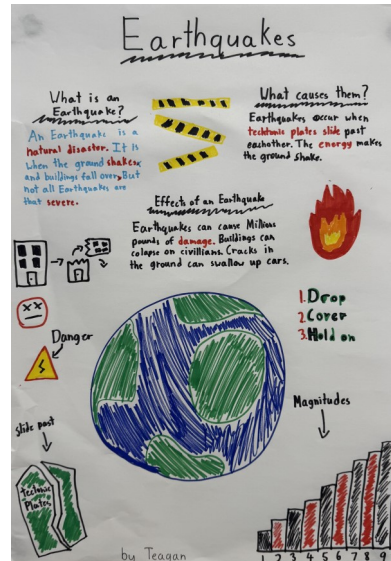 Earthquakes
What is an
Earthquake?
An Earthquake is a
natural disaster. It is
when the ground shakes,
and buildings fall over. But
not all Earthquakes are
that severe.
What causes them?
Earthquakes occur when
tecktonic plates slide past
eachother. The energy makes
the ground shake.
Effects of an Earthquake
Earthquakes can cause Millions
pounds of damage. Buildings can
colapse on civillians. Cracks in
the ground can swallow up cars.
1. Drop
2 Cover
3. Hold on
Danger
Magnitudes
slide past
Tectonic
Plates
1 2 3 4 5 6 7 8 9
by Teagan